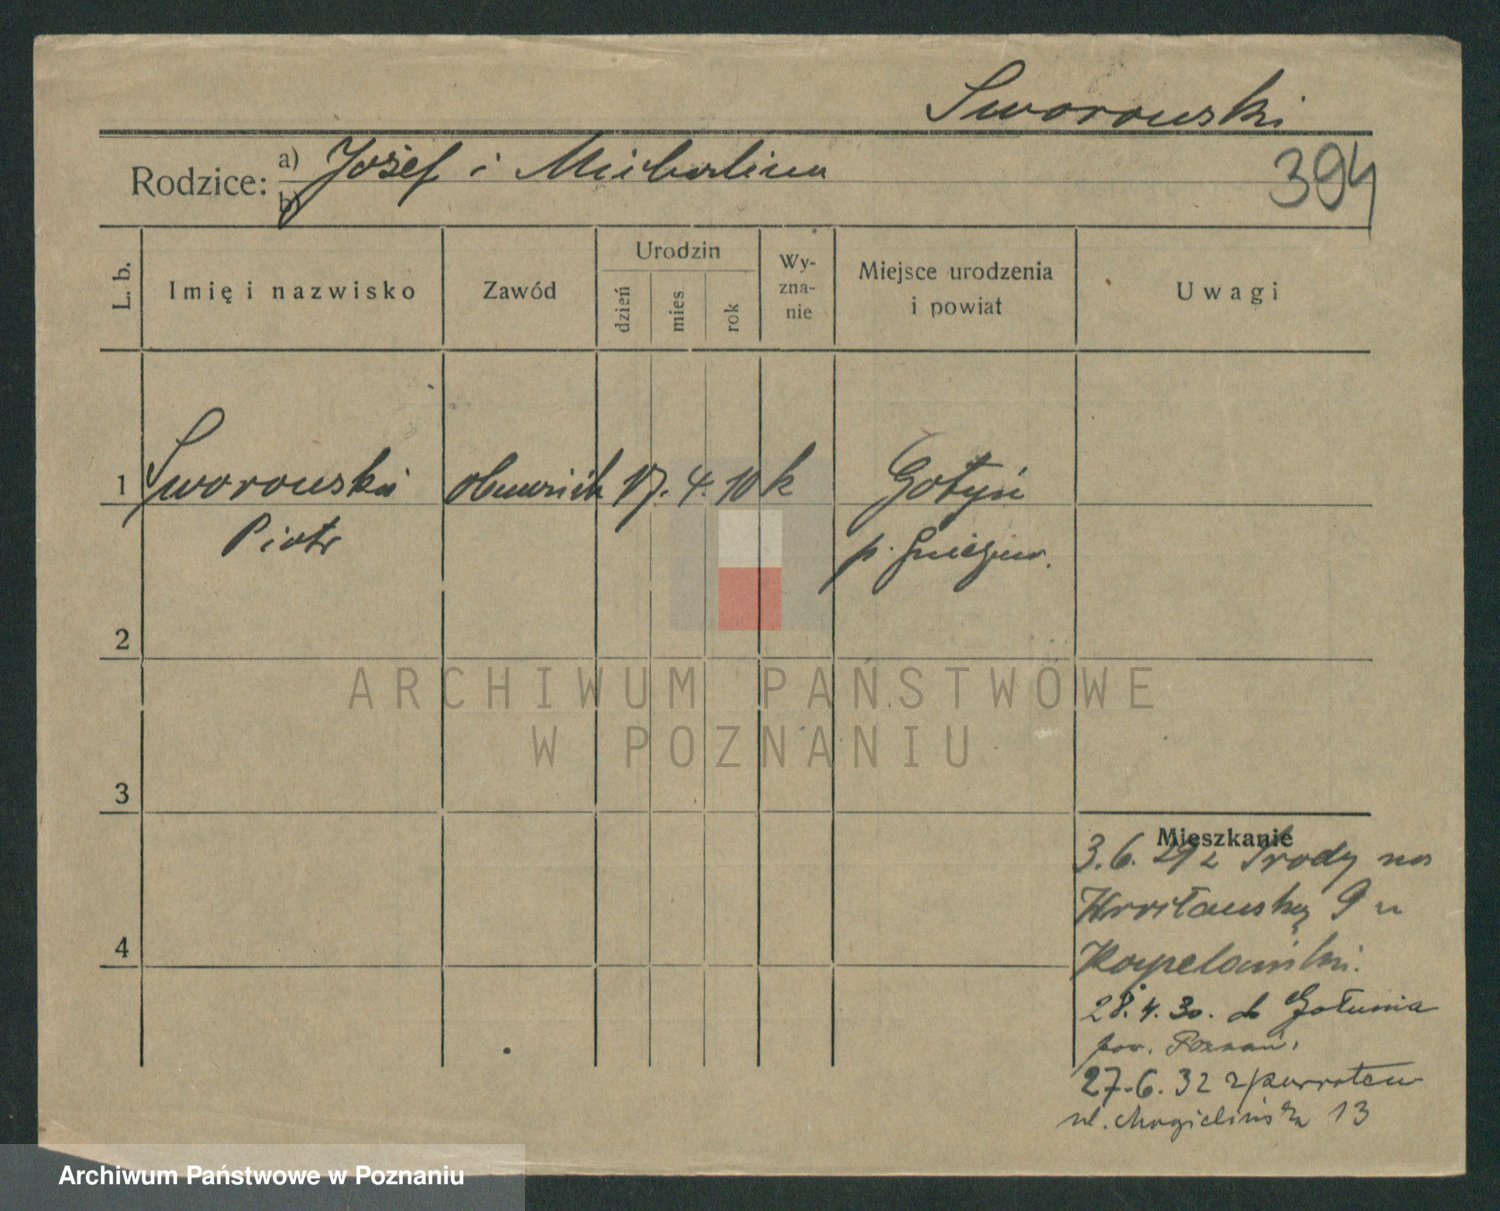 Sworowski
394
Rodzice: a) Józef i Michalina
b)
L. b. Imię i nazwisko Zawód Urodzin dzień mies rok Wy-zna-nie Miejsce urodzenia i powiat Uwagi
1 Sworowski 17. 4. 10 k
Piotr
p.
2
3
4
Mieszkanie
3.6. 29 z Środy na
Wrocławską 9 u
28.4.30. do
pow. Poznań.
27.6.32 z powrotem
ul. 13
ARCHIWUM PAŃSTWOWE
W POZNANIU
Archiwum Państwowe w Poznaniu